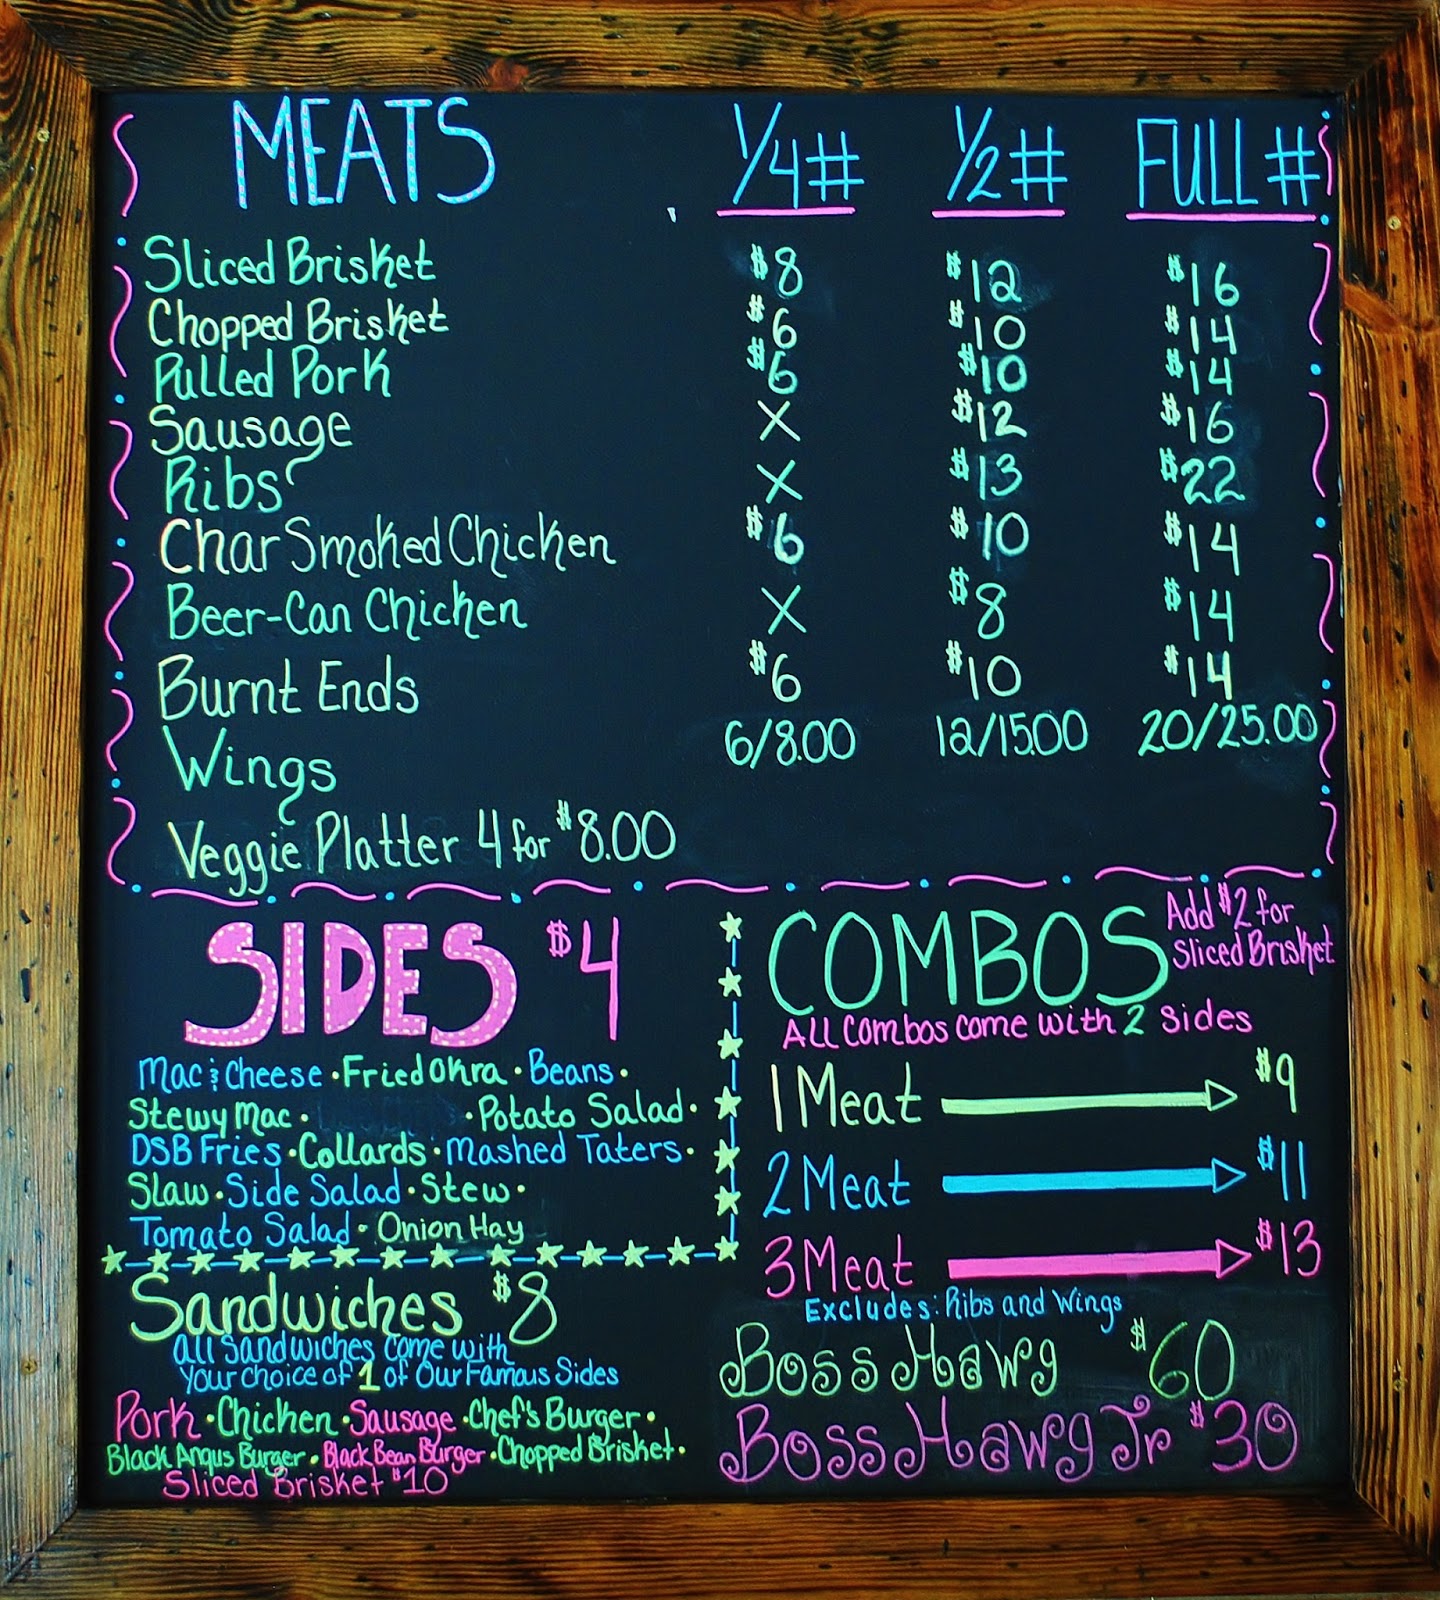 MEATS 1/4# 1/2# FULL #
Sliced Brisket $8 $12 $16
Chopped Brisket $6 $10 $14
Pulled Pork $6 $10 $14
Sausage X $12 $16
Ribs X $13 $22
Char Smoked Chicken $6 $10 $14
Beer-Can Chicken X $8 $14
Burnt Ends $6 $10 $14
Wings 6/8.00 12/15.00 20/25.00
Veggie Platter 4 for $8.00
SIDES $4
Mac & Cheese • Fried Okra • Beans •
Stewy Mac • • Potato Salad •
DSB Fries • Collards • Mashed Taters •
Slaw • Side Salad • Stew •
Tomato Salad • Onion Hay
Sandwiches $8
All Sandwiches come with
your choice of 1 of Our Famous Sides
Pork • Chicken • Sausage • Chef's Burger •
Black Angus Burger • Black Bean Burger • Chopped Brisket •
Sliced Brisket $10
COMBOS
Add $2 for
Sliced Brisket
All combos come with 2 sides
1 Meat $9
2 Meat $11
3 Meat $13
Excludes: Ribs and Wings
Boss Hawg $60
Boss Hawg Jr $30